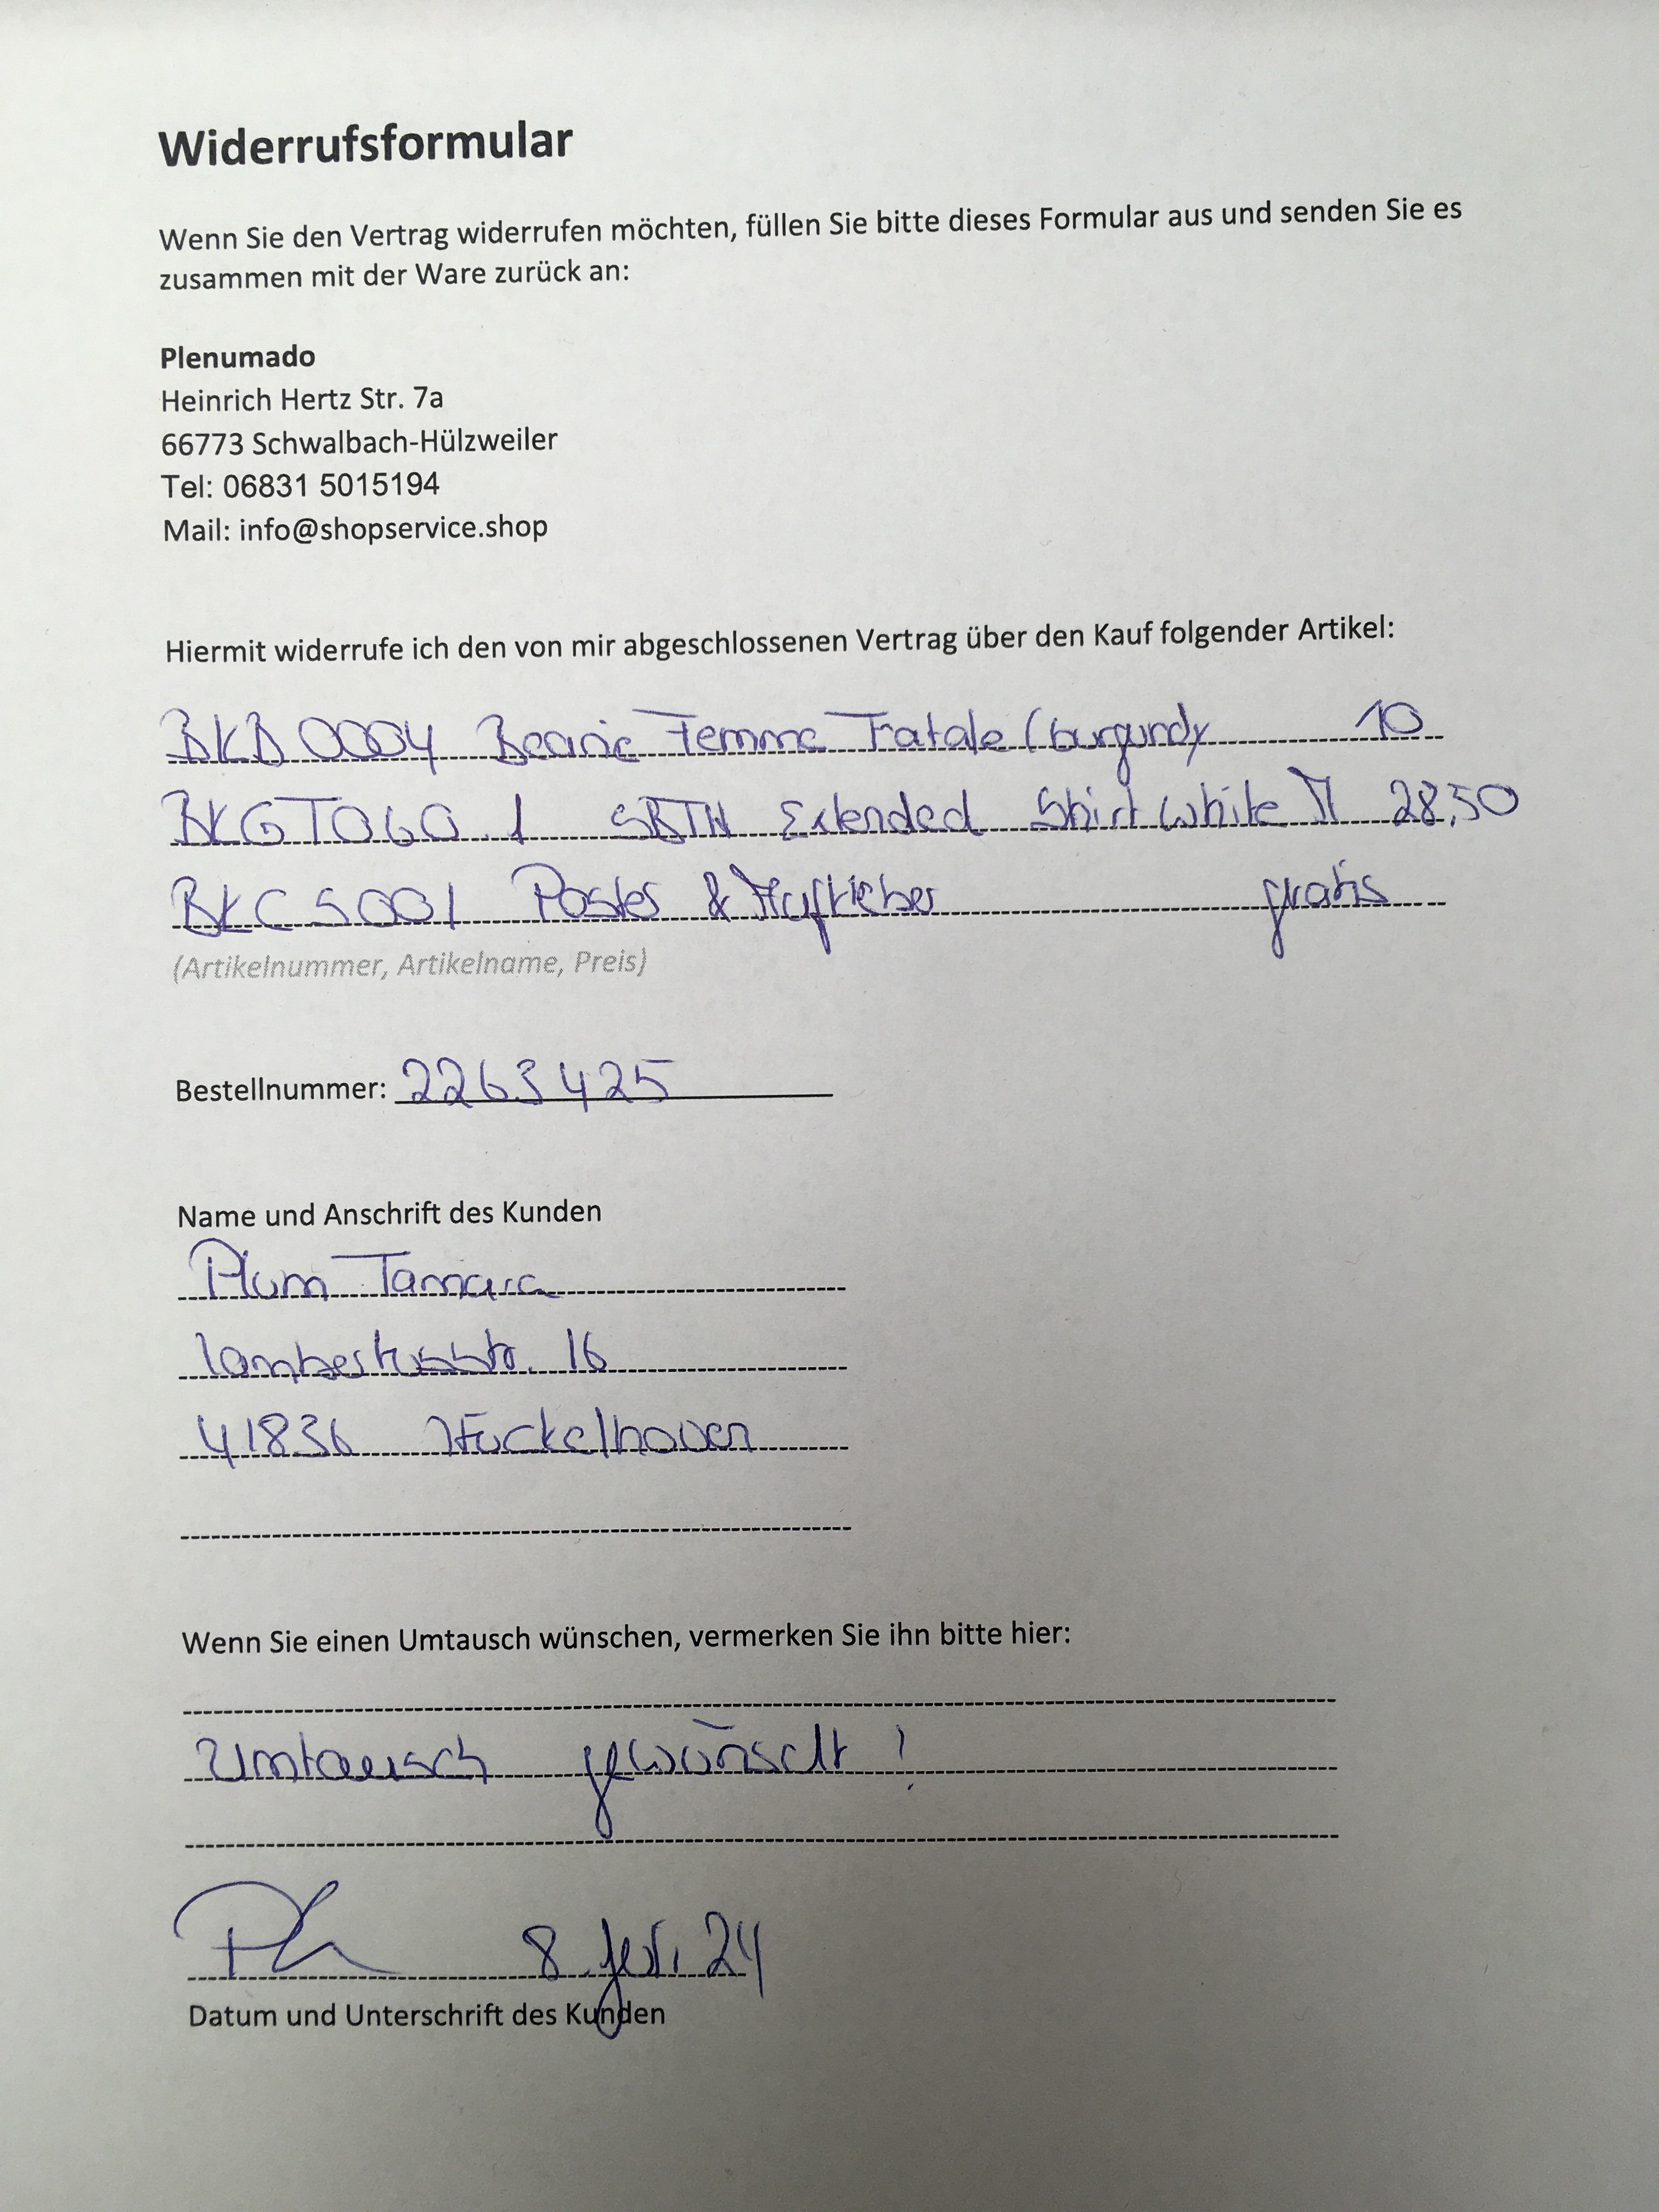 Widerrufsformular
Wenn Sie den Vertrag widerrufen möchten, füllen Sie bitte dieses Formular aus und senden Sie es
zusammen mit der Ware zurück an:
Plenumado
Heinrich Hertz Str. 7a
66773 Schwalbach-Hülzweiler
Tel: 06831 5015194
Mail: info@shopservice.shop
Hiermit widerrufe ich den von mir abgeschlossenen Vertrag über den Kauf folgender Artikel:
BKB0004 Beanie Femme Fatale (burgundy 10
BKGTO60.1 SBTH Extended Shirt White 28,50
BKCS001 Poster & Aufkleber gratis
(Artikelnummer, Artikelname, Preis)
Bestellnummer: 2263425
Name und Anschrift des Kunden
Plum Tamara
Lambertusstr. 16
41836 Hückelhoven
Wenn Sie einen Umtausch wünschen, vermerken Sie ihn bitte hier:
Umtausch gewünscht!
8. 24
Datum und Unterschrift des Kunden